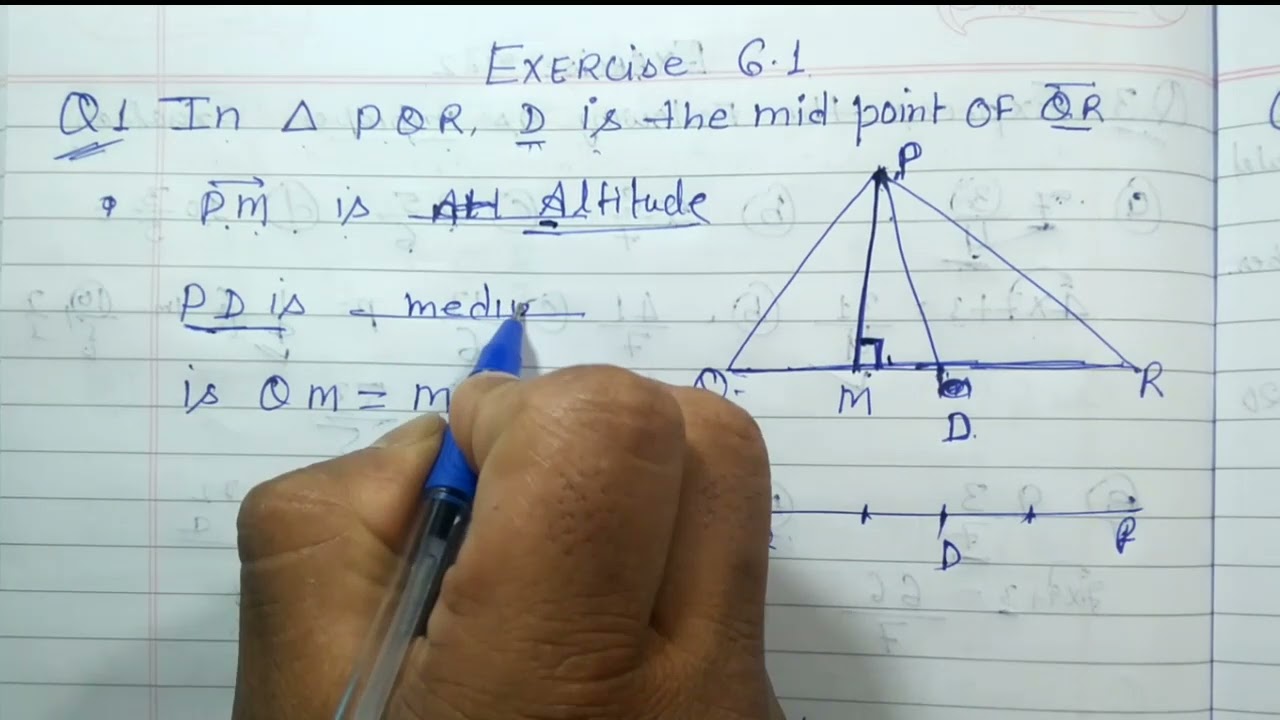 Exercise 6.1
Q1 In Δ PQR, D is the mid point of QR
PM is Altitude
PD is
is QM = M
P
Q
M
D
R
D
R